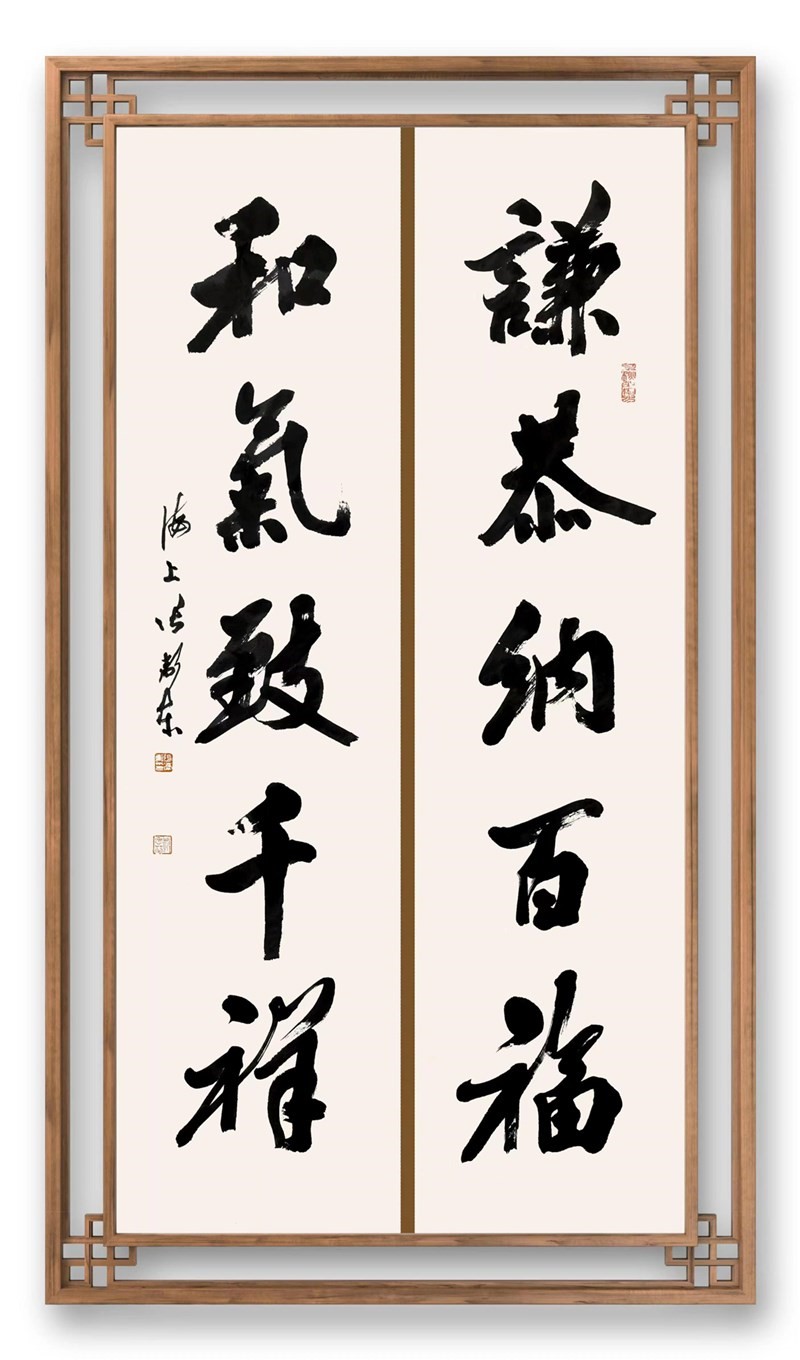 謙恭納百福
和氣致千祥
海上